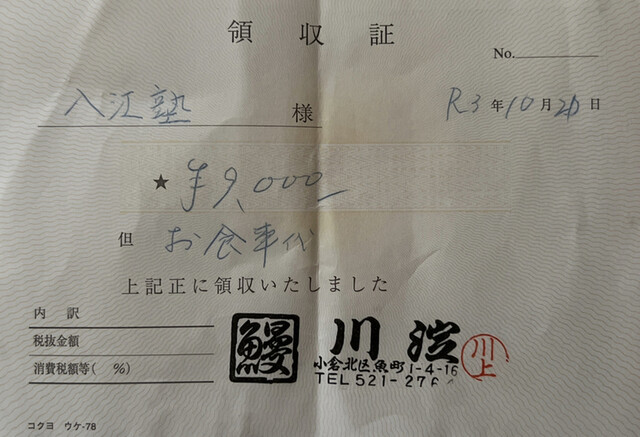 領収証
No.
入江塾 様
R3年10月20日
★ ¥9,000
但 お食事代
上記正に領収いたしました
内訳
税抜金額
消費税額等( %)
鰻 川淀
小倉北区魚町1-4-16
TEL 521-276
川上
コクヨ ウケ-78